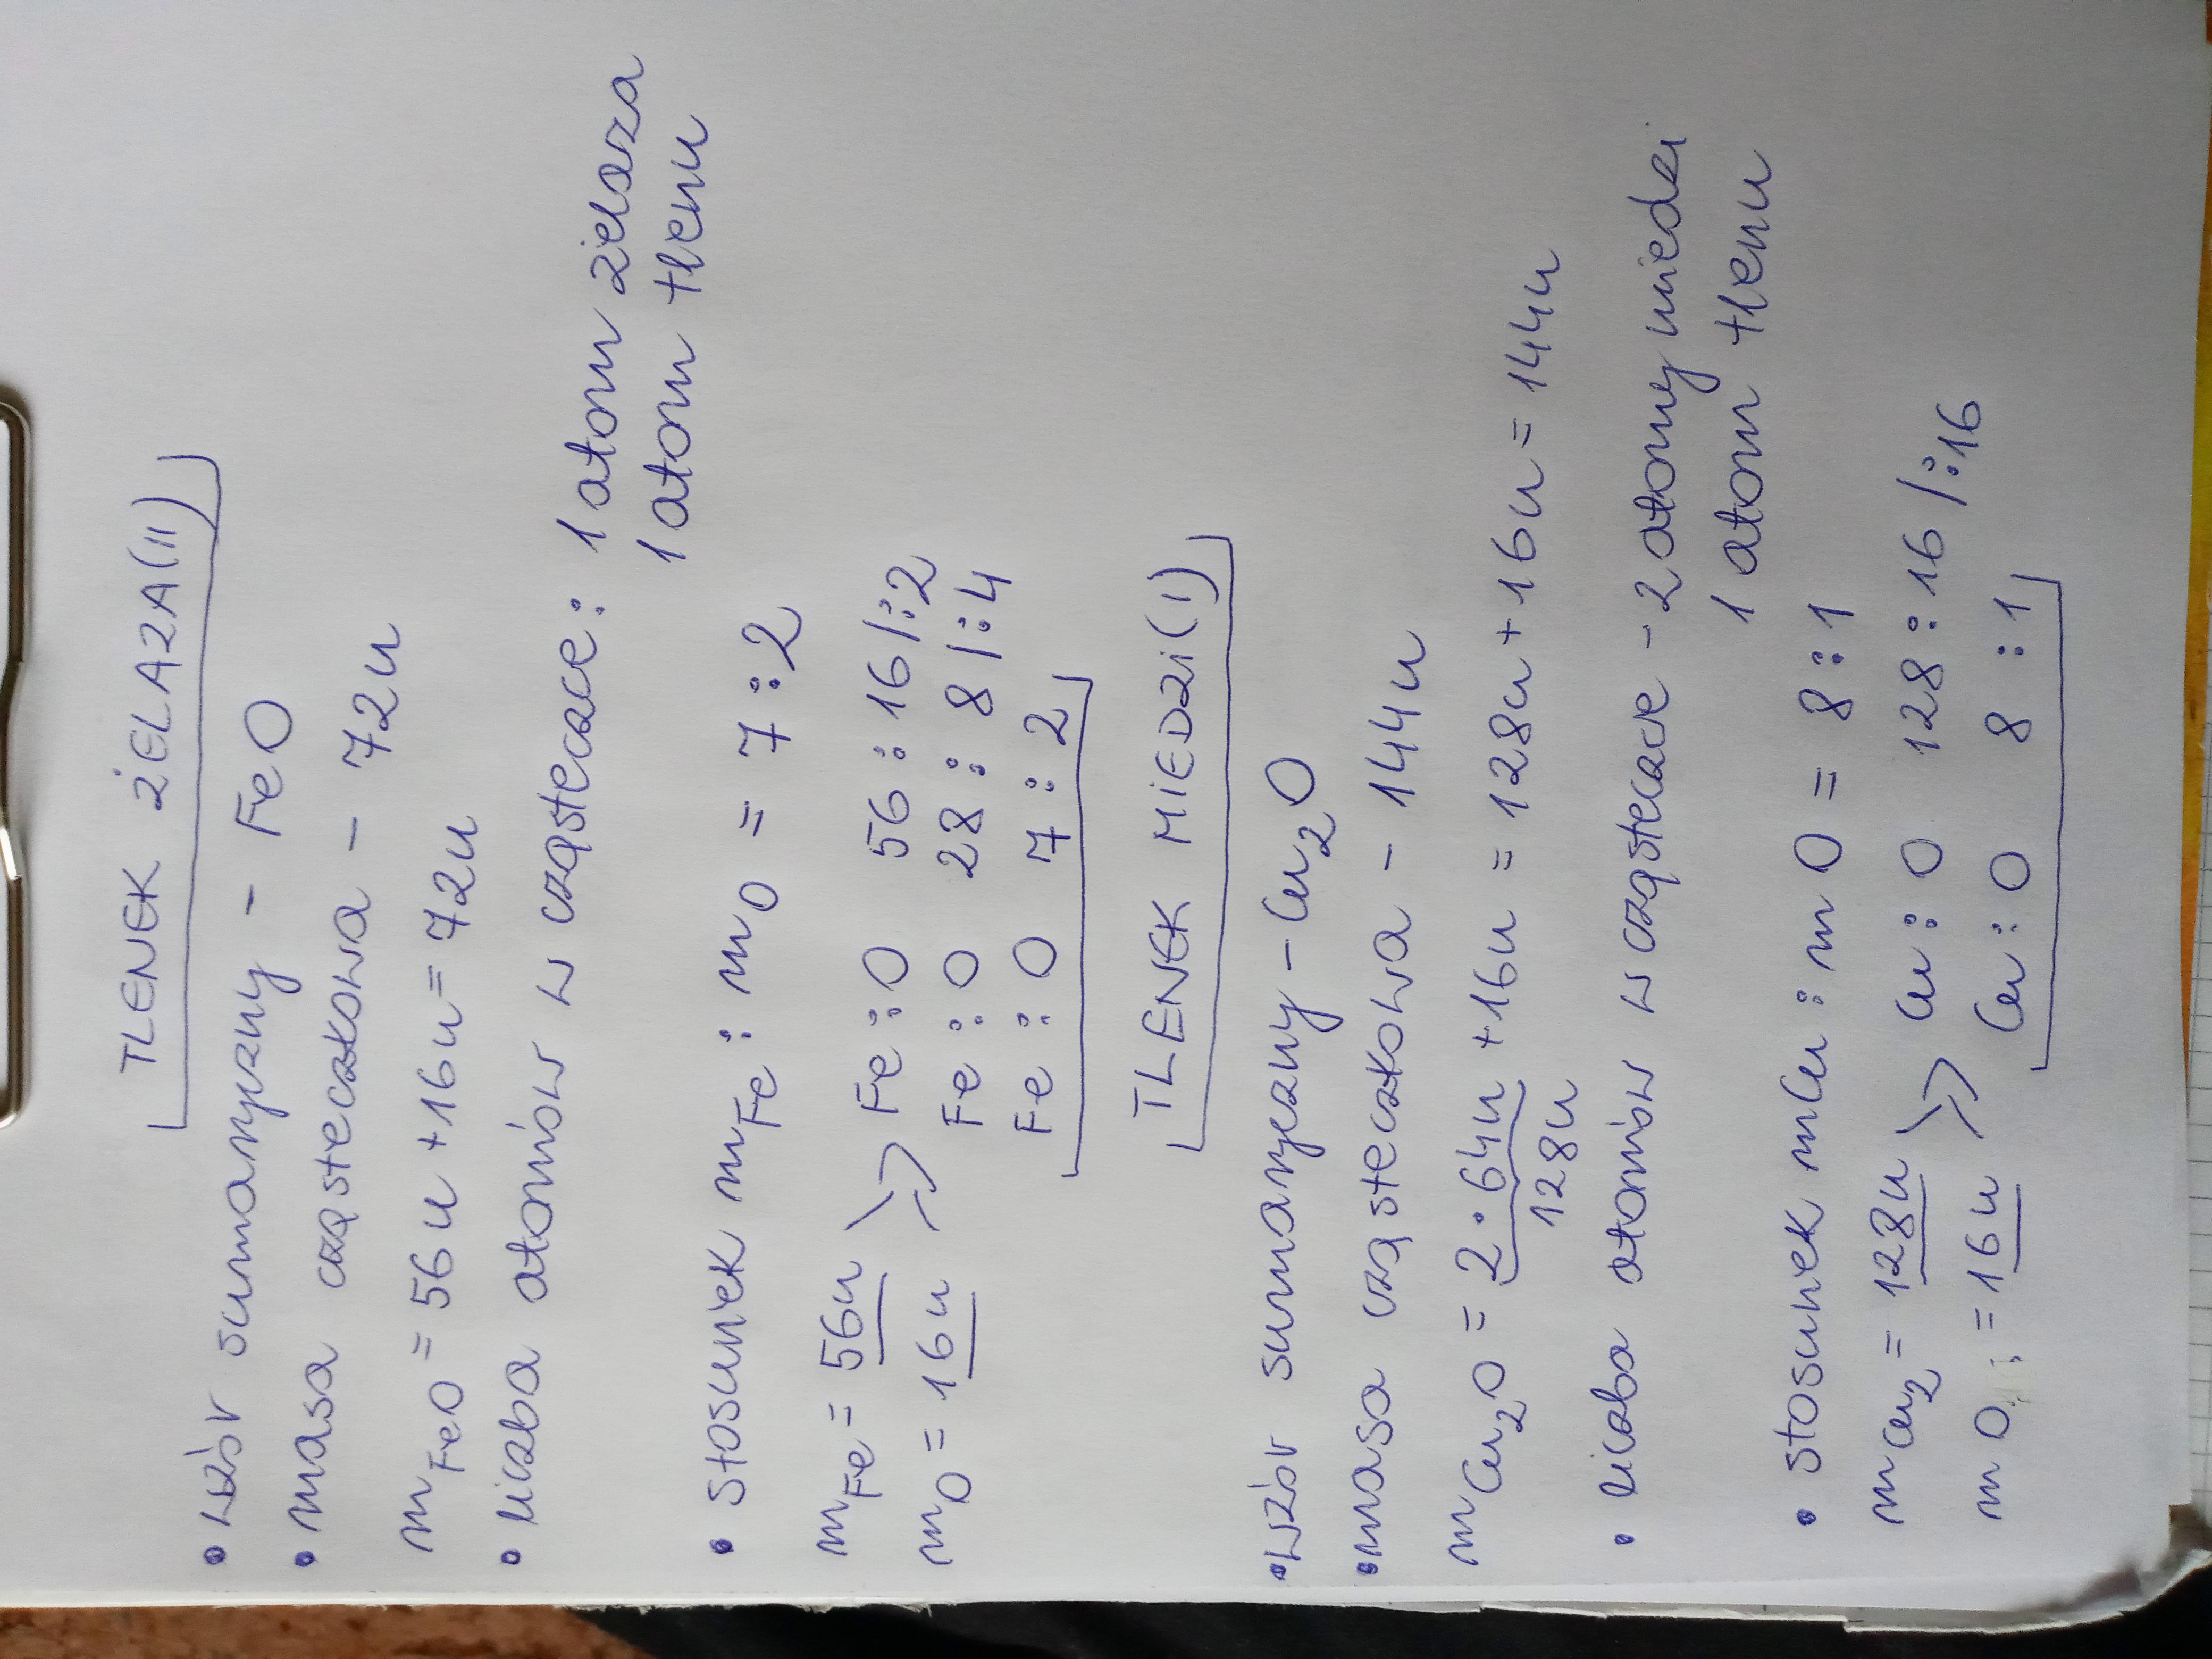 TLENEK ŻELAZA(II)
• wzór sumaryczny - FeO
• masa cząsteczkowa - 72u
mFeO = 56u + 16u = 72u
• liczba atomów w cząsteczce: 1 atom żelaza
1 atom tlenu
• stosunek mFe : mO = 7 : 2
mFe = 56u Fe : O 56 : 16 /:2
mO = 16u Fe : O 28 : 8 /:4
Fe : O 7 : 2
TLENEK MIEDZI(I)
• wzór sumaryczny - Cu₂O
• masa cząsteczkowa - 144u
mCu₂O = 2 · 64u + 16u = 128u + 16u = 144u
128u
• liczba atomów w cząsteczce - 2 atomy miedzi
1 atom tlenu
• stosunek mCu : mO = 8 : 1
mCu₂ = 128u Cu : O 128 : 16 /:16
mO = 16u Cu : O 8 : 1